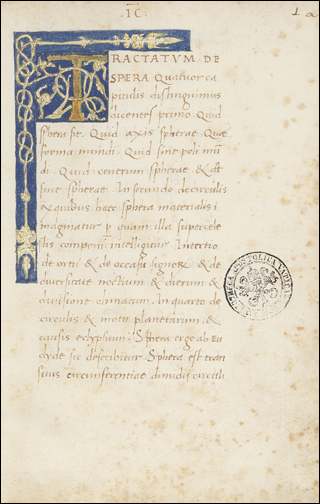 .IC.
1 a
TRACTATVM DE
SPERA Quatuor ca
pitulis distinguimus
dicentes primo. Quid
sphera sit. Quid axis spherae. Quae
forma mundi. Quid sint poli mũ
di. Quid centrum spherae & ...
sint spherae. In secundo de circulis
& quibus haec sphera materialis i
imaginatur p quam illa supercele
stis componi intelligitur. In tertio
de ortu & de occasu signorũ & de
diuersitate noctium & dierum &
diuisione climatum. In quarto de
circulis & motu planetarum &
causis eclypsium. Sphera ergo ab Eu
clyde sic describitur. Sphera est tran
situs circumferentiae dimidii circuli